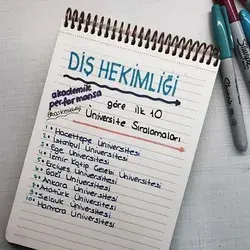 DİŞ HEKİMLİĞİ
akademik
performansa
göre ilk 10
Üniversite Sıralamaları
1• Hacettepe Üniversitesi
2• İstanbul Üniversitesi
3• Ege Üniversitesi
4• İzmir Katip Çelebi Üniversitesi
5• Erciyes Üniversitesi
6• Gazi Üniversitesi
7• Ankara Üniversitesi
8• Atatürk Üniversitesi
9• Selçuk Üniversitesi
10• Marmara Üniversitesi